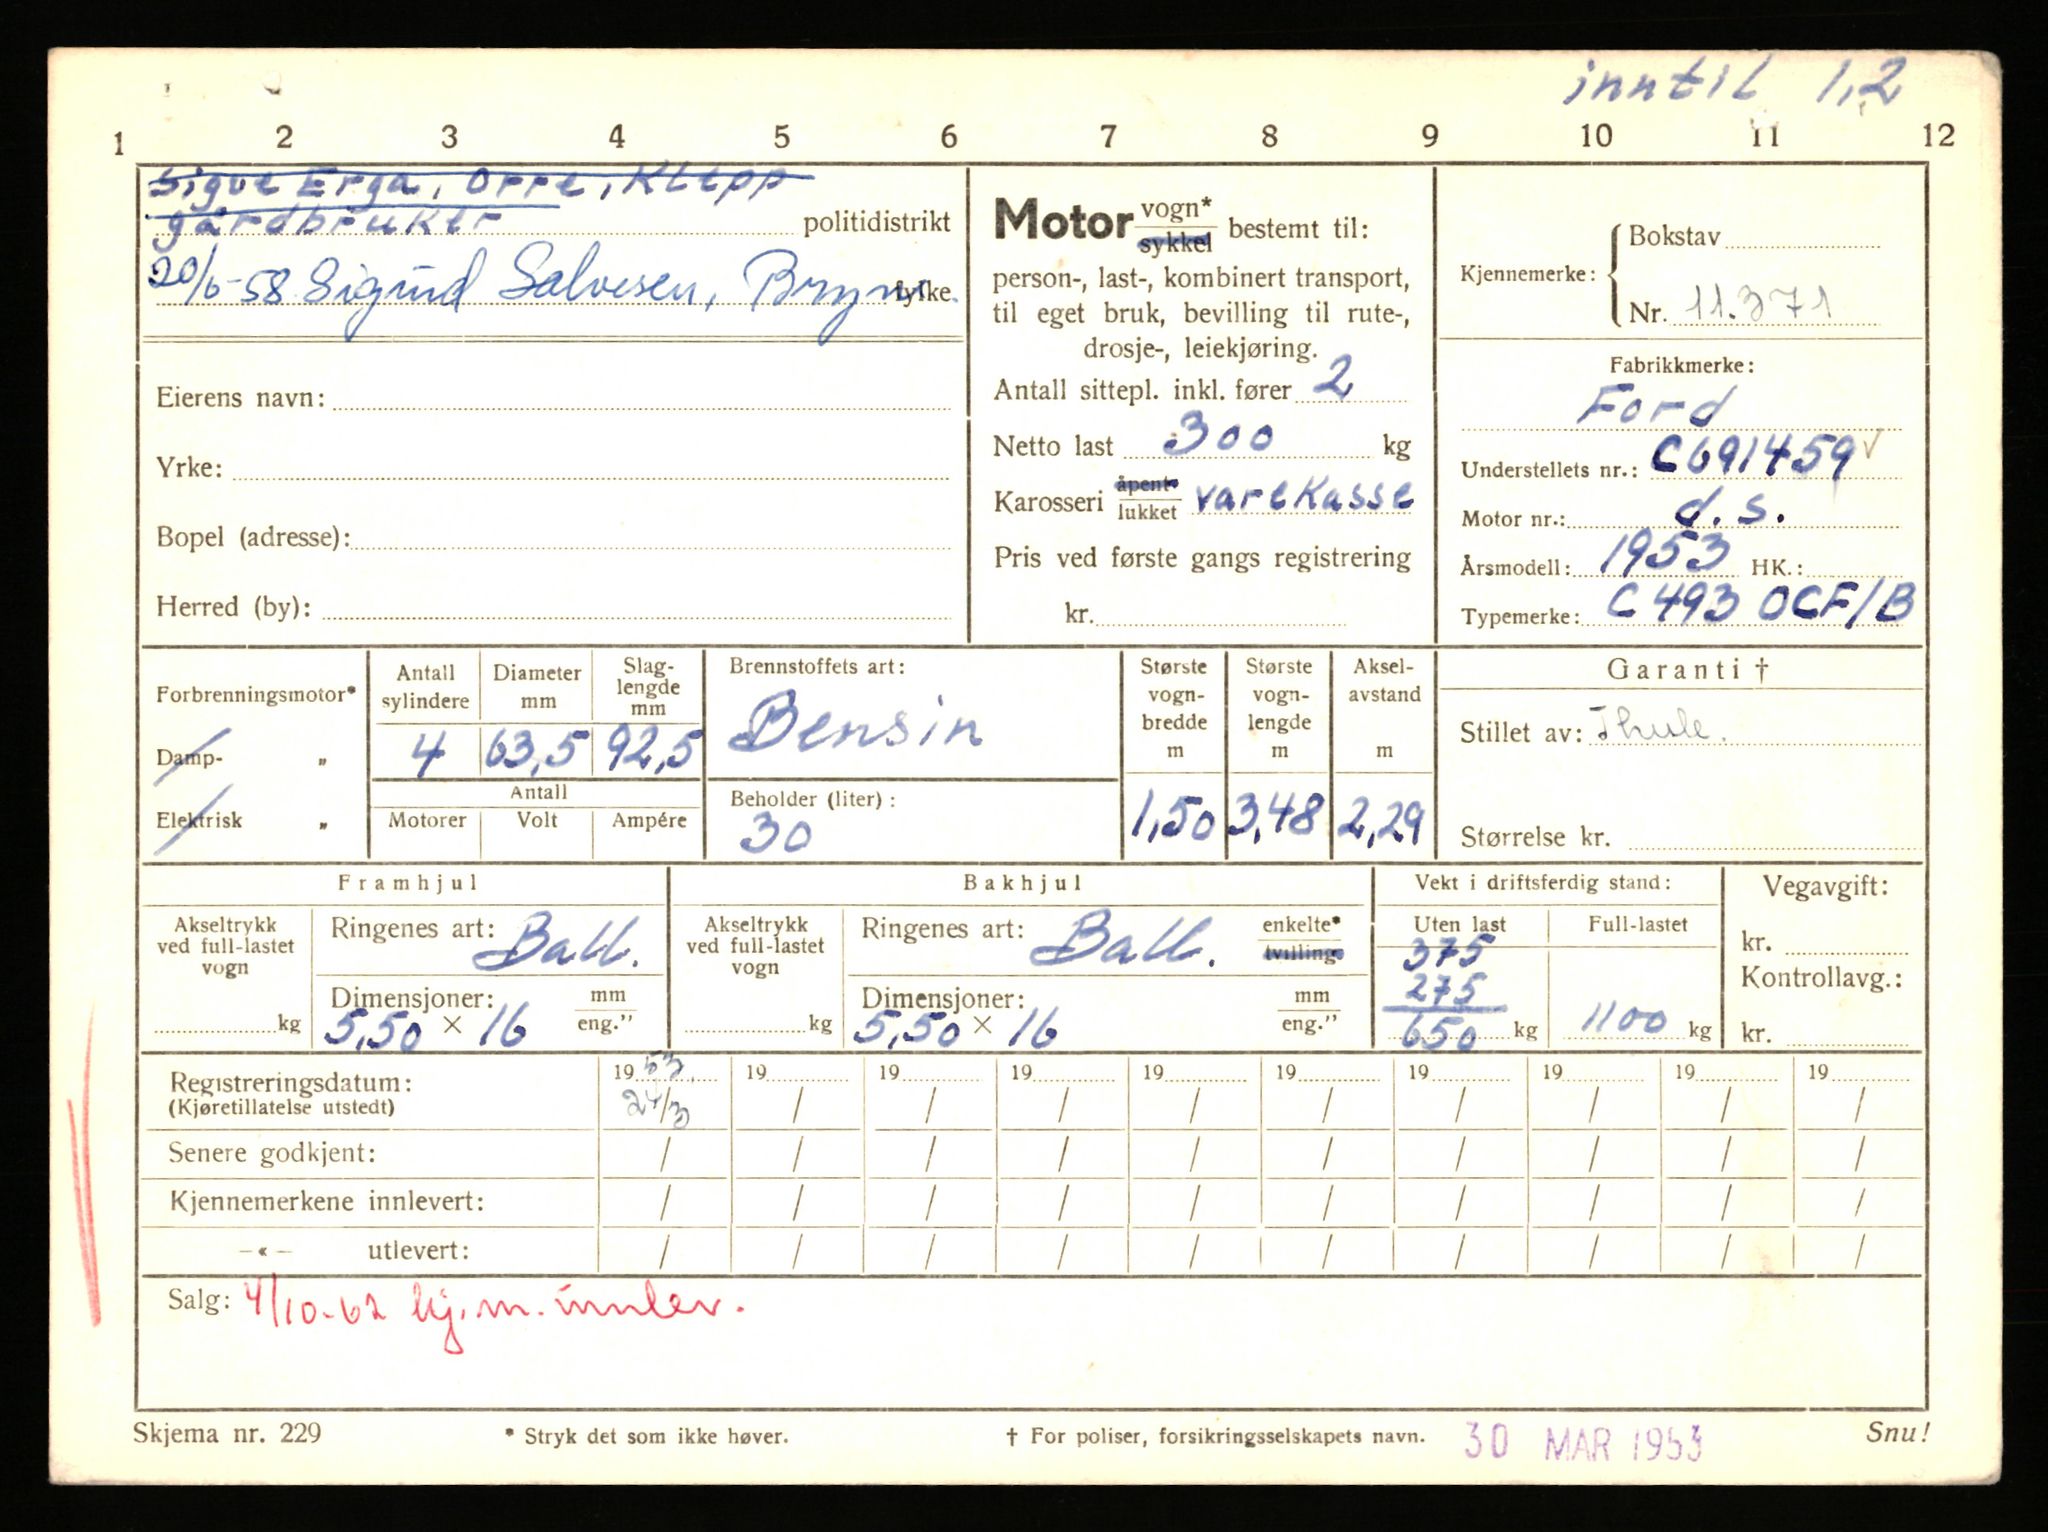 inntil 1,2
1 2 3 4 5 6 7 8 9 10 11 12
Sigve Erga, Orre, Klepp
gårdbruker politidistrikt
20/6-58 Sigurd Salvesen, Bryne. fylke.
Eierens navn:
Yrke:
Bopel (adresse):
Herred (by):
Motor vogn* sykkel bestemt til:
person-, last-, kombinert transport,
til eget bruk, bevilling til rute-,
drosje-, leiekjøring.
Antall sittepl. inkl. fører 2
Netto last 300 kg
Karosseri åpent- lukket varekasse
Pris ved første gangs registrering
kr.
Kjennemerke: Bokstav
Nr. 11.371
Fabrikkmerke:
Ford
Understellets nr.: C691459 ✓
Motor nr.: d.s.
Årsmodell: 1953 HK.:
Typemerke: C 493 OCF/B
Forbrenningsmotor*
Damp- „
Elektrisk „
Antall sylindere
4
Diameter mm
63,5
Slag-lengde mm
92,5
Antall
Motorer Volt Ampére
Brennstoffets art:
Bensin
Beholder (liter):
30
Største vogn-bredde m
1,50
Største vogn-lengde m
3,48
Aksel-avstand m
2,29
Garanti †
Stillet av: Thule.
Størrelse kr.
Framhjul
Akseltrykk ved full-lastet vogn
kg
Ringenes art: Ball.
Dimensjoner: mm eng."
5,50 × 16
Bakhjul
Akseltrykk ved full-lastet vogn
kg
Ringenes art: Ball. enkelte* tvilling-
Dimensjoner: mm eng."
5,50 × 16
Vekt i driftsferdig stand:
Uten last Full-lastet
375
275
650 kg 1100 kg
Vegavgift:
kr.
Kontrollavg.:
kr.
Registreringsdatum: 19 53 19 19 19 19 19 19 19 19 19
(Kjøretillatelse utstedt) 24/3 / / / / / / / / /
Senere godkjent: / / / / / / / / / /
Kjennemerkene innlevert: / / / / / / / / / /
—«— utlevert: / / / / / / / / / /
Salg: 4/10-62 kj.m. innlev.
Skjema nr. 229 * Stryk det som ikke høver. † For poliser, forsikringsselskapets navn. 30 MAR 1953 Snu!